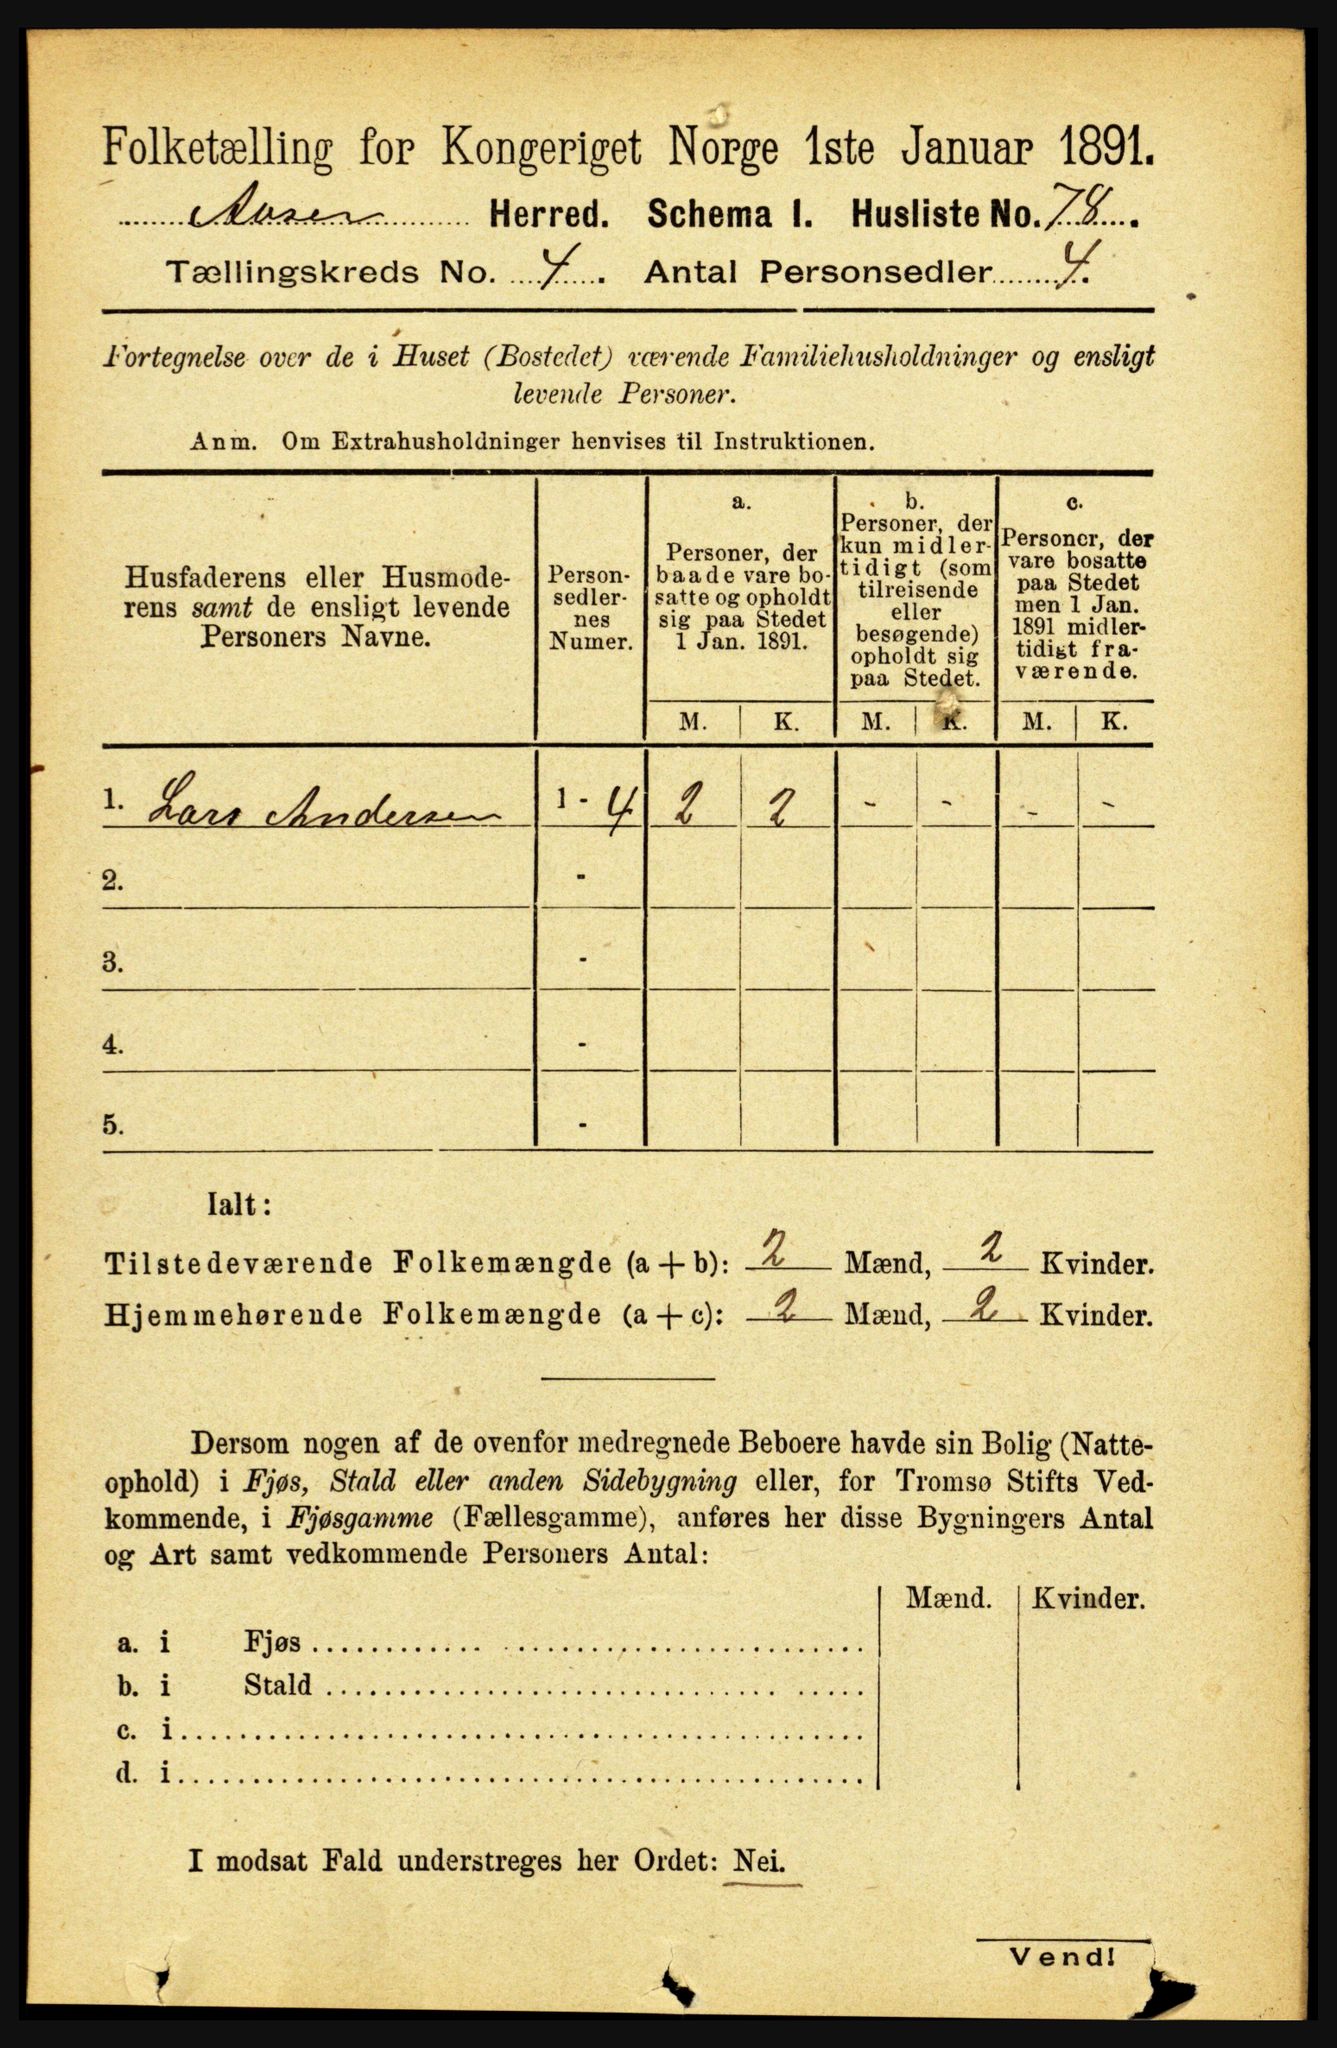 Folketælling for Kongeriget Norge 1ste Januar 1891.
Aasen Herred. Schema I. Husliste No. 78.
Tællingskreds No. 4. Antal Personsedler 4.
Fortegnelse over de i Huset (Bostedet) værende Familiehusholdninger og ensligt
levende Personer.
Anm. Om Extrahusholdninger henvises til Instruktionen.
Husfaderens eller Husmode-
rens samt de ensligt levende
Personers Navne.
Person-
sedler-
nes
Numer.
a.
Personer, der
baade vare bo-
satte og opholdt
sig paa Stedet
1 Jan. 1891.
b.
Personer, der
kun midler-
tidigt (som
tilreisende
eller
besøgende)
opholdt sig
paa Stedet.
c.
Personer, der
vare bosatte
paa Stedet
men 1 Jan.
1891 midler-
tidigt fra-
værende.
M. K. M. K. M. K.
1. Lars Andersen 1 - 4 2 2 - - - -
2. -
3. -
4. -
5. -
Ialt:
Tilstedeværende Folkemængde (a + b): 2 Mænd, 2 Kvinder.
Hjemmehørende Folkemængde (a + c): 2 Mænd, 2 Kvinder.
Dersom nogen af de ovenfor medregnede Beboere havde sin Bolig (Natte-
ophold) i Fjøs, Stald eller anden Sidebygning eller, for Tromsø Stifts Ved-
kommende, i Fjøsgamme (Fællesgamme), anføres her disse Bygningers Antal
og Art samt vedkommende Personers Antal:
Mænd. Kvinder.
a. i Fjøs
b. i Stald
c. i
d. i
I modsat Fald understreges her Ordet: Nei.
Vend!